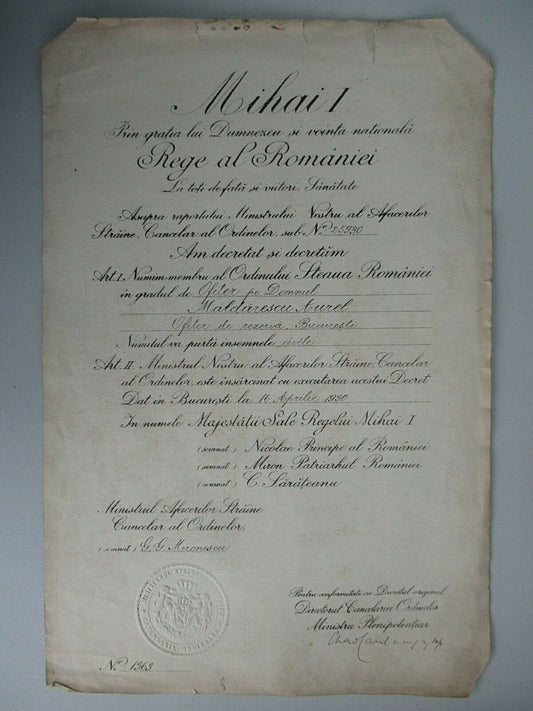 Mihai I
Prin grația lui Dumnezeu și voința națională
Rege al României
La toți de față și viitori, Sănătate
Asupra raportului Ministrului Nostru al Afacerilor
Străine, Cancelar al Ordinelor, sub Nº 25930
Am decretat și decretăm
Art. I. Numim membru al Ordinului Steaua României
în gradul de Ofițer pe Domnul
Măldărescu Aurel
Ofițer de rezervă, București
Numitul va purta însemnele civile
Art. II. Ministrul Nostru al Afacerilor Străine, Cancelar
al Ordinelor, este însărcinat cu executarea acestui Decret
Dat în București la 16 Aprilie 1930
În numele Majestății Sale Regelui Mihai I
(semnat) Nicolae Principe al României
(semnat) Miron Patriarhul României
(semnat) C. Sărățeanu
Ministrul Afacerilor Străine
Cancelar al Ordinelor,
(semnat) G. G. Mironescu
Pentru conformitate cu Decretul original
Directorul Cancelariei Ordinelor
Ministru Plenipotențiar
Nº 1363